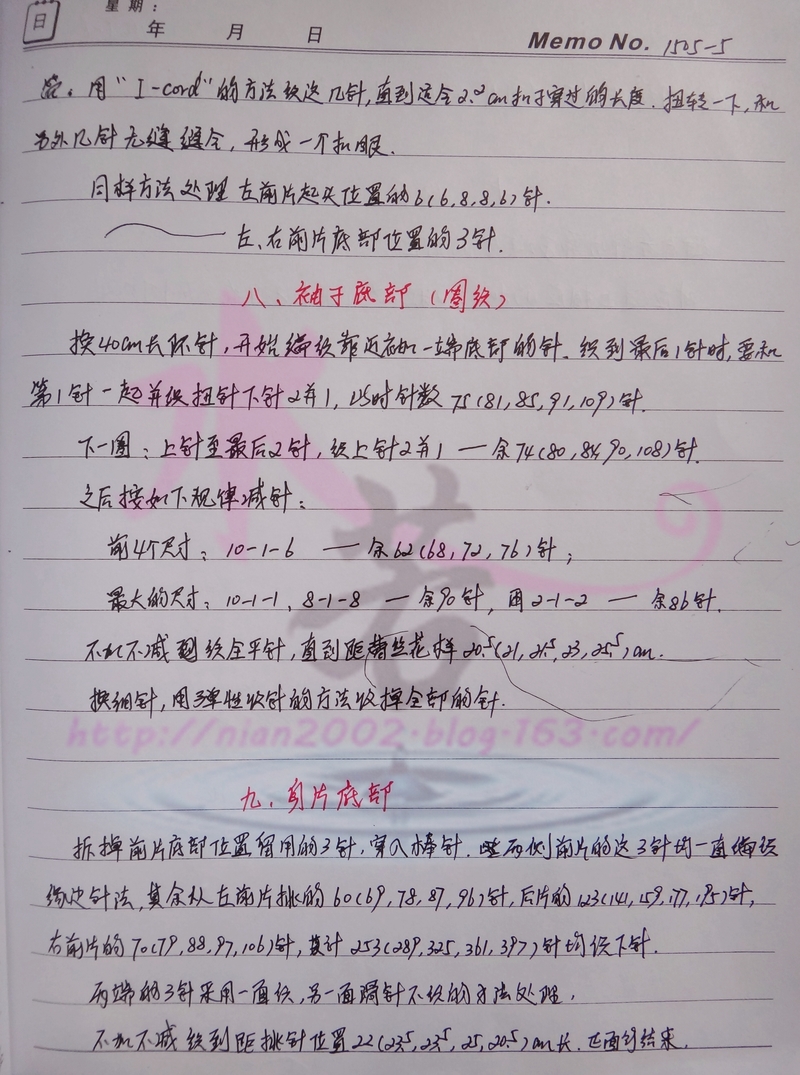 日 星期:
年 月 日 Memo No. 1505-5
用“I-cord”的方法织这几针,直到适合2.2cm扣子穿过的长度.扭转一下,和
另外几针无缝缝合,形成一个扣眼.
同样方法处理左前片起头位置的6(6,8,8,6)针.
左、右前片底部位置的3针.
八、袖子底部(圈织)
换40cm长环针,开始编织靠近袖一端底部的针.织到最后1针时,要和
第1针一起并织扭针下针2并1,此时针数75(81,85,91,109)针.
下一圈:上针至最后2针,织上针2并1 — 余74(80,84,90,108)针.
之后按如下规律减针:
前4个尺寸:10-1-6 — 余62(68,72,76)针;
最大的尺寸:10-1-1、8-1-8 — 余90针,再2-1-2 — 余86针.
不加不减织全平针,直到距蕾丝花样20.5(21,21.5,23,25.5)cm.
换细针,用弹性收针的方法收掉全部的针.
水若
http://nian2002.blog.163.com/
九、身片底部
拆掉前片底部位置留用的3针,穿入棒针.两侧前片的这3针均一直编织
缘边针法,其余从左前片挑的60(69,78,87,96)针,后片的123(141,159,177,195)针,
右前片的70(79,88,97,106)针,共计253(289,325,361,397)针均织下针.
两端的3针采用一面织,另一面滑针不织的方法处理.
不加不减织到距挑针位置22(23.5,23.5,25,20.5)cm长.正面行结束.